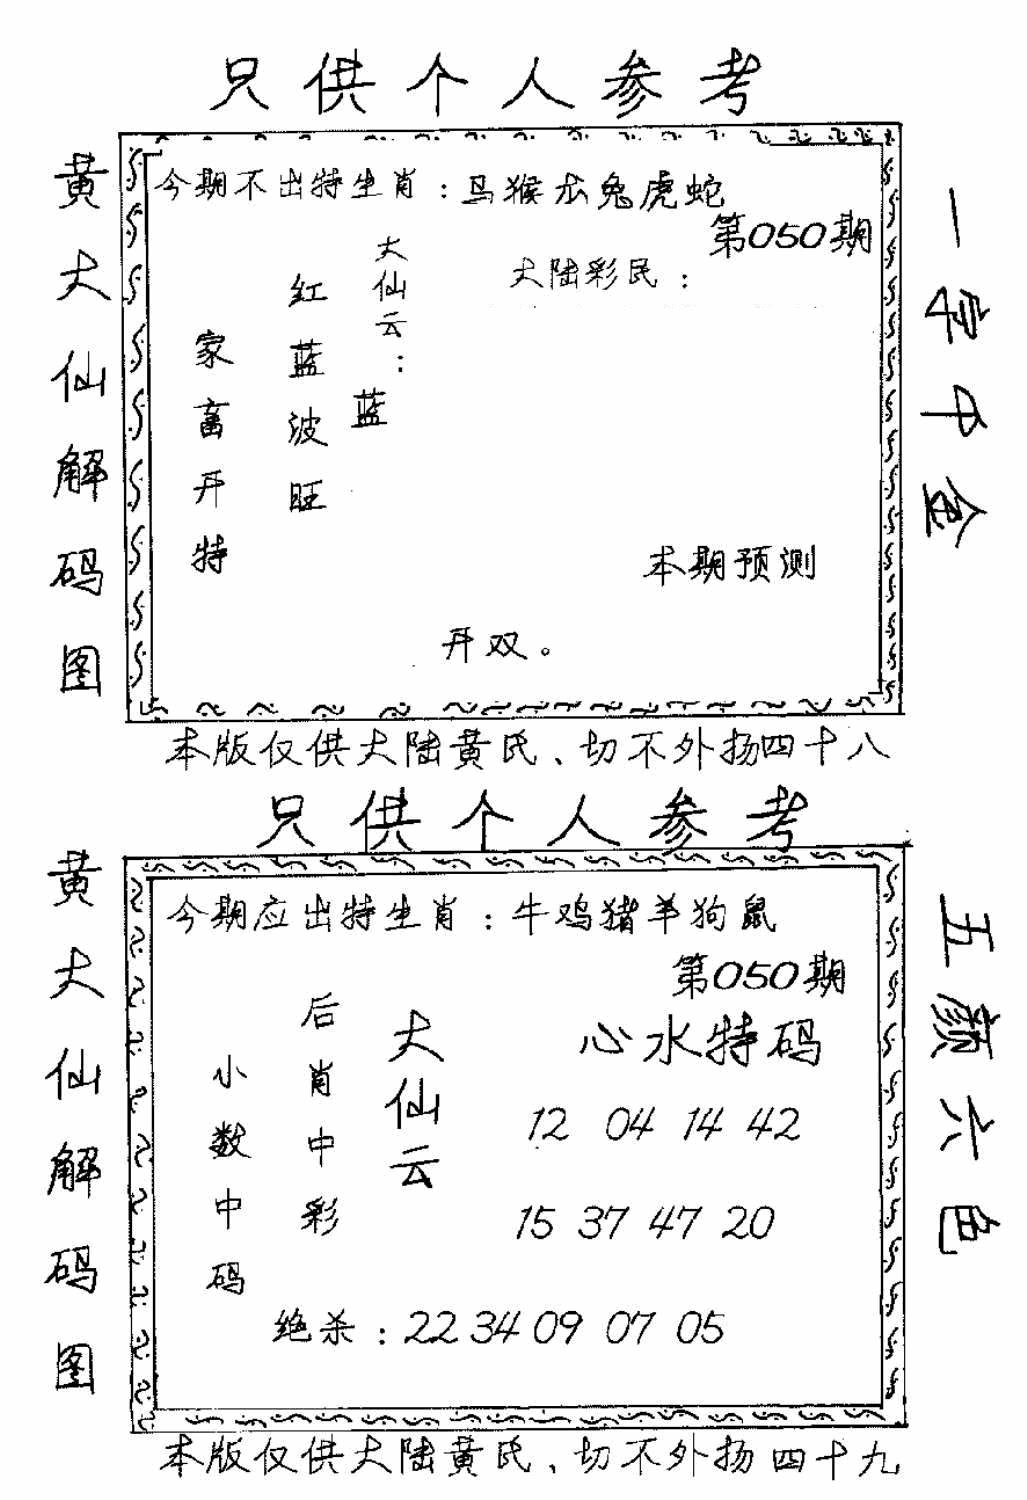 只供个人参考
黄大仙解码图
今期不出特生肖：马猴龙兔虎蛇
第050期
大陆彩民：
大仙云：
蓝
红蓝波旺
家畜开特
本期预测
开双。
一字中金
本版仅供大陆黄氏、切不外扬四十八
只供个人参考
黄大仙解码图
今期应出特生肖：牛鸡猪羊狗鼠
第050期
心水特码
大仙云
后肖中彩
小数中码
12 04 14 42
15 37 47 20
绝杀：22 34 09 07 05
五颜六色
本版仅供大陆黄氏、切不外扬四十九